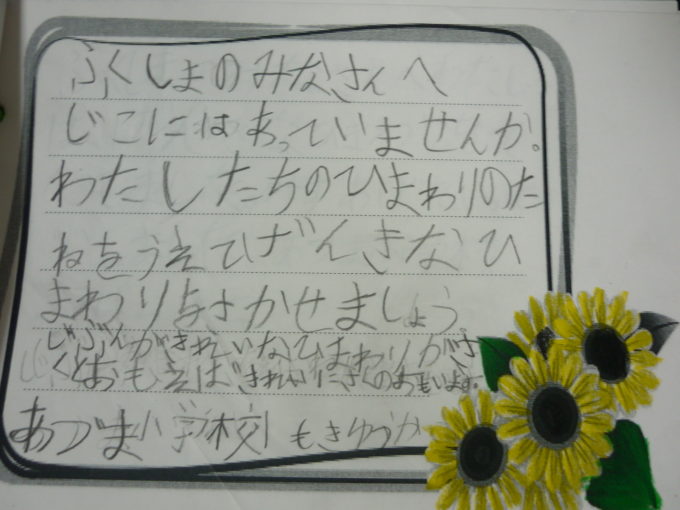 ふくしまのみなさんへ
じこにはあっていませんか。
わたしたちのひまわりのた
ねをうえてげんきなひ
まわりをさかせましょう。
じぶんがきれいなひまわりがさ
くとおもえばきれいにさくのおもいよす。
あづま小学校 もきゆづか